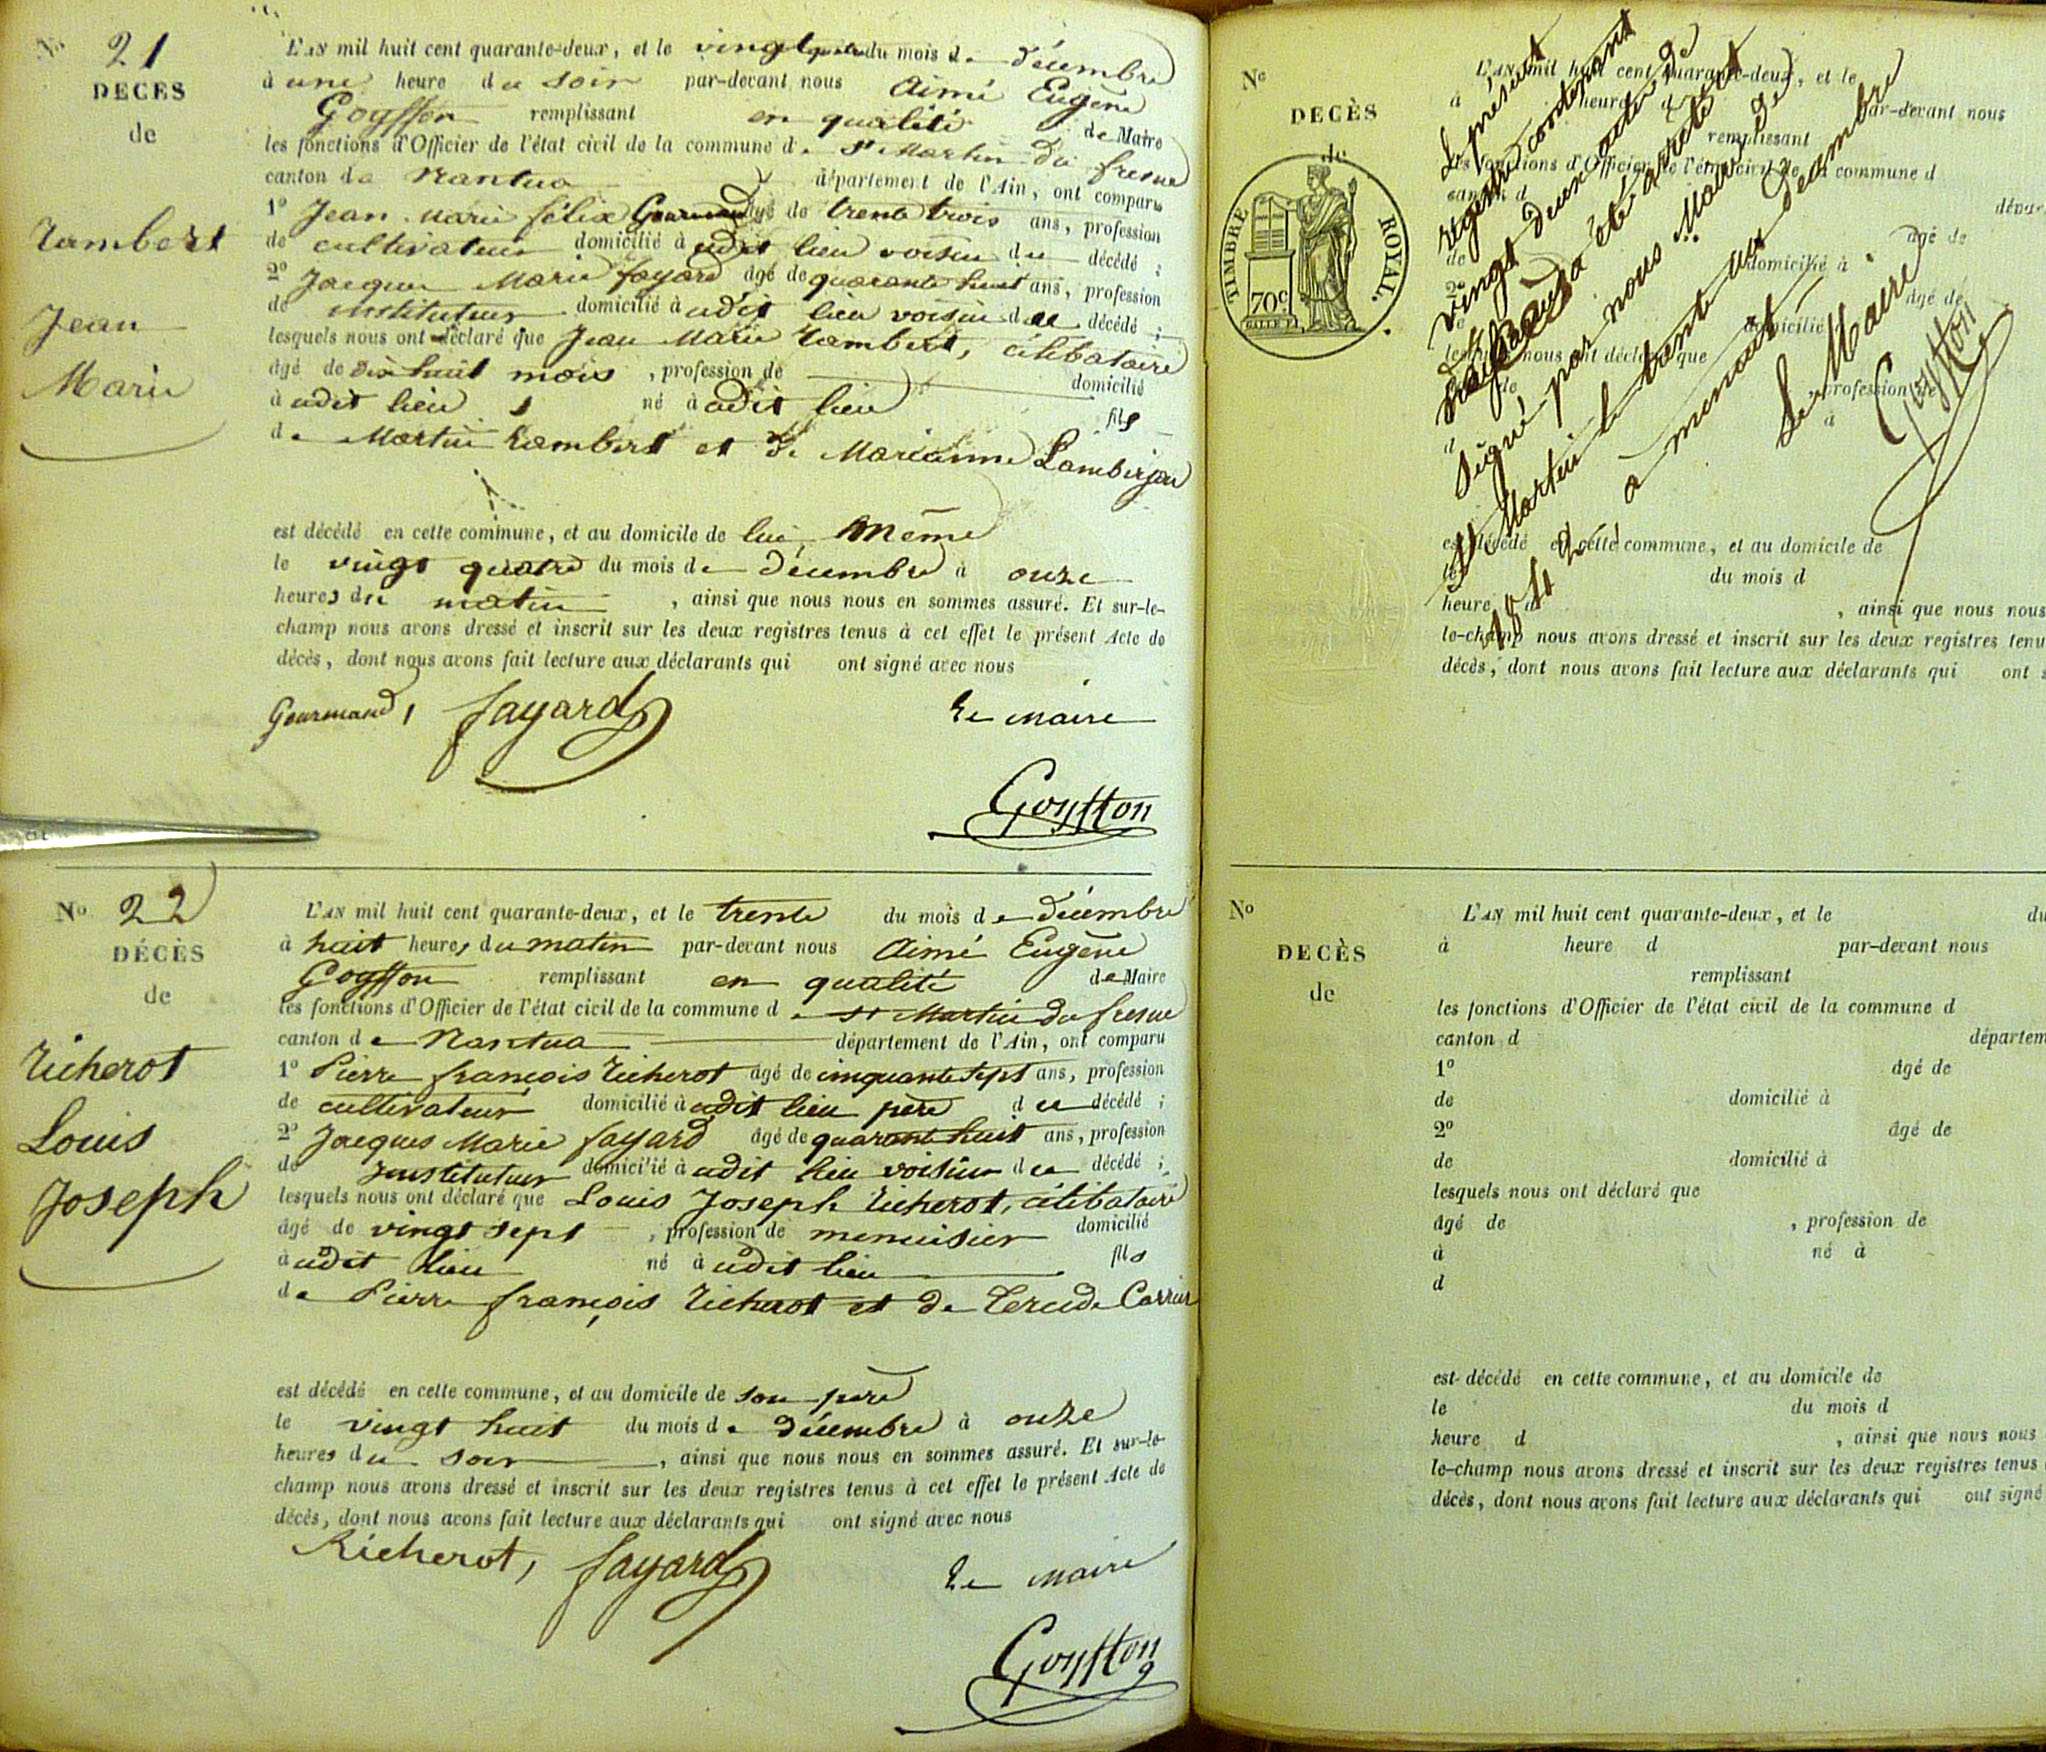 No 21
DECES
de
Rambert
Jean
Marie
L'AN mil huit cent quarante-deux, et le vingt quatre du mois de décembre
à une heure du soir par-devant nous Aimé Eugène
Goyffon remplissant en qualité de Maire
les fonctions d'Officier de l'état civil de la commune de St Martin du fresne
canton de Nantua département de l'Ain, ont comparu
1º Jean Marie félix Gourmand âgé de trente trois ans, profession
de cultivateur domicilié à udit lieu voisin du décédé ;
2º Jacques Marie fayard âgé de quarante huit ans, profession
de instituteur domicilié à udit lieu voisin du décédé ;
lesquels nous ont déclaré que Jean Marie Rambert, célibataire
âgé de dix huit mois , profession de domicilié
à udit lieu né à udit lieu fils
de Martin Rambert et de Marianne Lamberjon
est décédé en cette commune, et au domicile de lui même
le vingt quatre du mois de décembre à onze
heures du matin , ainsi que nous nous en sommes assuré. Et sur-le-
champ nous avons dressé et inscrit sur les deux registres tenus à cet effet le présent Acte de
décès, dont nous avons fait lecture aux déclarants qui ont signé avec nous
Gourmand, fayard Le Maire
Goyffon
No 22
DÉCÈS
de
Richerot
Louis
Joseph
L'AN mil huit cent quarante-deux, et le trente du mois de décembre
à huit heures du matin par-devant nous Aimé Eugène
Goyffon remplissant en qualité de Maire
les fonctions d'Officier de l'état civil de la commune de St Martin du fresne
canton de Nantua département de l'Ain, ont comparu
1º Pierre françois Richerot âgé de cinquante sept ans, profession
de cultivateur domicilié à udit lieu père du décédé ;
2º Jacques Marie fayard âgé de quarante huit ans, profession
de Instituteur domicilié à udit lieu voisin du décédé ;
lesquels nous ont déclaré que Louis Joseph Richerot, célibataire
âgé de vingt sept , profession de menuisier domicilié
à udit lieu né à udit lieu fils
de Pierre françois Richerot et de Carrier
est décédé en cette commune, et au domicile de son père
le vingt huit du mois de décembre à onze
heures du soir , ainsi que nous nous en sommes assuré. Et sur-le-
champ nous avons dressé et inscrit sur les deux registres tenus à cet effet le présent Acte de
décès, dont nous avons fait lecture aux déclarants qui ont signé avec nous
Richerot, fayard Le Maire
Goyffon
No
DECÈS
de
TIMBRE ROYAL.
70 c.
L'AN mil huit cent quarante-deux, et le
à heure d par-devant nous
remplissant
les fonctions d'Officier de l'état civil de la commune d
canton d dépar
âgé de
de domicilié à
2º âgé de
de domicilié
lesquels nous ont déclaré que
âgé de profession de
à
d
est décédé en cette commune, et au domicile de
le du mois d
heure d , ainsi que nous nous
le-champ nous avons dressé et inscrit sur les deux registres tenu
décès, dont nous avons fait lecture aux déclarants qui ont s
Le présent
régistre contenant
vingt deux actes de
décès a été arrêté et
signé par nous Maire de
St Martin le trente un Décembre
1842 à menuit
Le Maire
Goyffon
No
DECÈS
de
L'AN mil huit cent quarante-deux, et le du
à heure d par-devant nous
remplissant
les fonctions d'Officier de l'état civil de la commune d
canton d départem
1º âgé de
de domicilié à
2º âgé de
de domicilié à
lesquels nous ont déclaré que
âgé de , profession de
à né à
d
est décédé en cette commune, et au domicile de
le du mois d
heure d , ainsi que nous nous
le-champ nous avons dressé et inscrit sur les deux registres tenus
décès, dont nous avons fait lecture aux déclarants qui ont signé